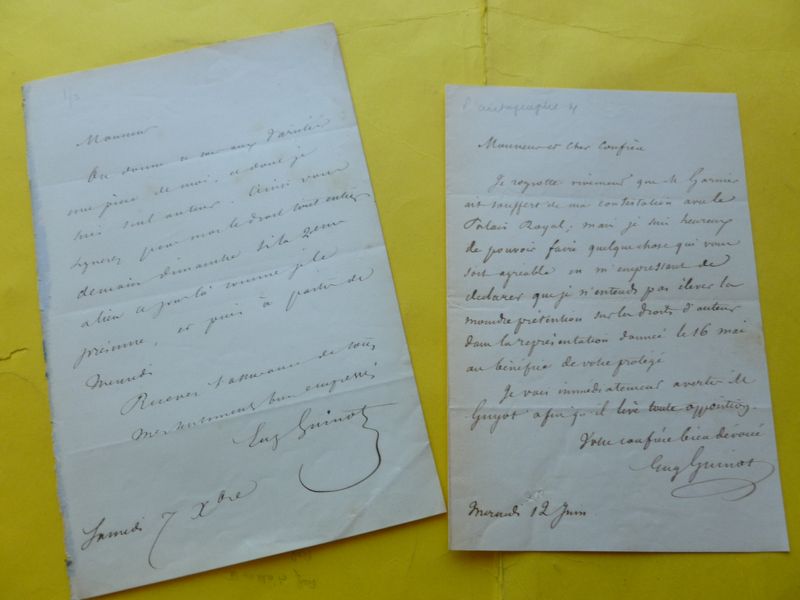 1/2
Monsieur
On donne ce soir aux
une pièce de moi, et dont je
suis seul auteur. Ainsi vous
signerez pour moi le droit tout entier
demain dimanche si la 2eme
a lieu ce jour là comme je le
présume, et puis à partir de
Mercredi
Recevez l'assurance de tous
mes sentimens bien empressés
Eug Guinot
Samedi 7 Xbre
autographes
Monsieur et cher Confrère
Je regrette vivement que M Garnier
ait souffert de ma contestation avec le
Palais Royal; mais je suis heureux
de pouvoir faire quelque chose qui vous
soit agréable en m'empressant de
declarer que je n'entends pas élever la
moindre prétention sur les droits d'auteur
dans la représentation donnée le 16 mai
au bénéfice de votre protégé
Je vais immédiatement avertir M
Guyot afin qu'il lève toute opposition.
Votre confrère bien dévoué
Eug Guinot
Mercredi 12 Juin